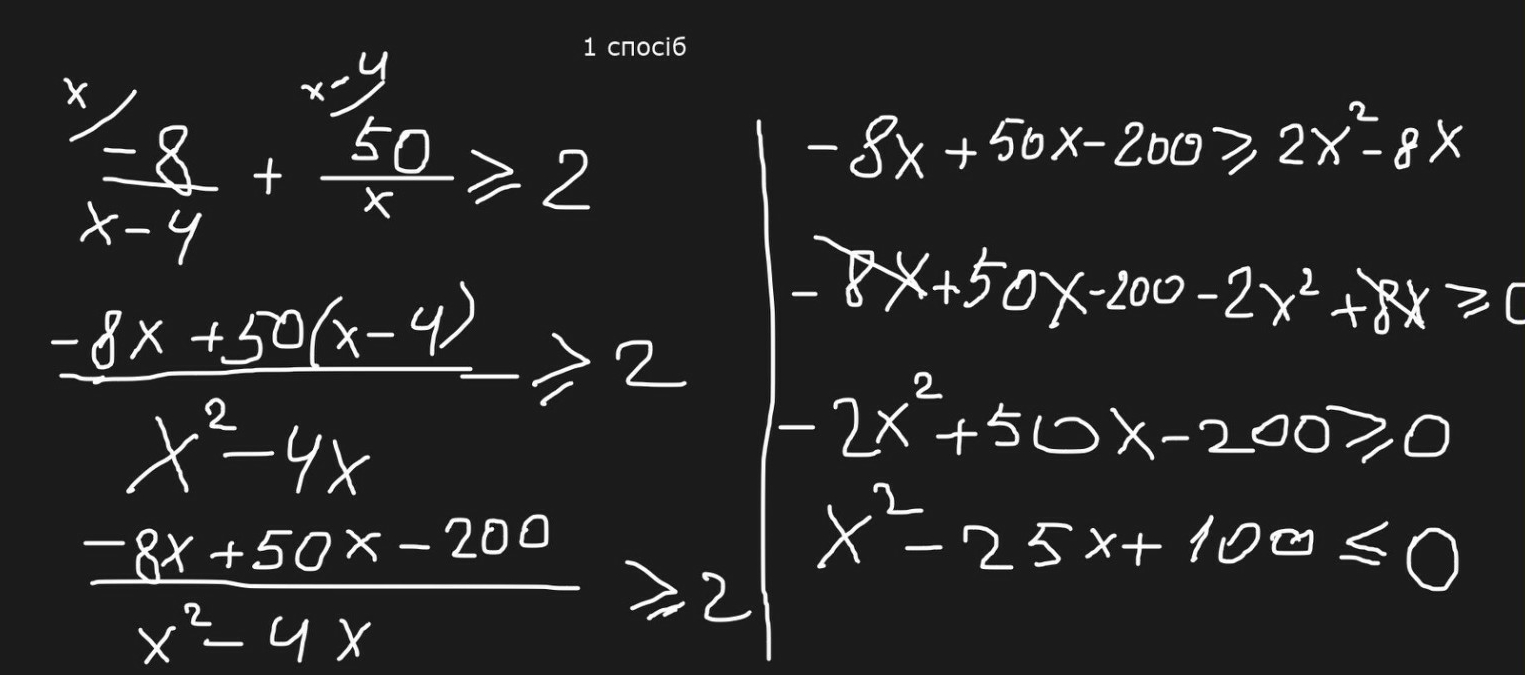 1 спосіб
x/ -8/(x-4) + x-4/ 50/x ⩾ 2
(-8x+50(x-4))/(x²-4x) ⩾ 2
(-8x+50x-200)/(x²-4x) ⩾ 2
-8x+50x-200⩾2x²-8x
-8x+50x-200-2x²+8x⩾0
-2x²+50x-200⩾0
x²-25x+100≤0